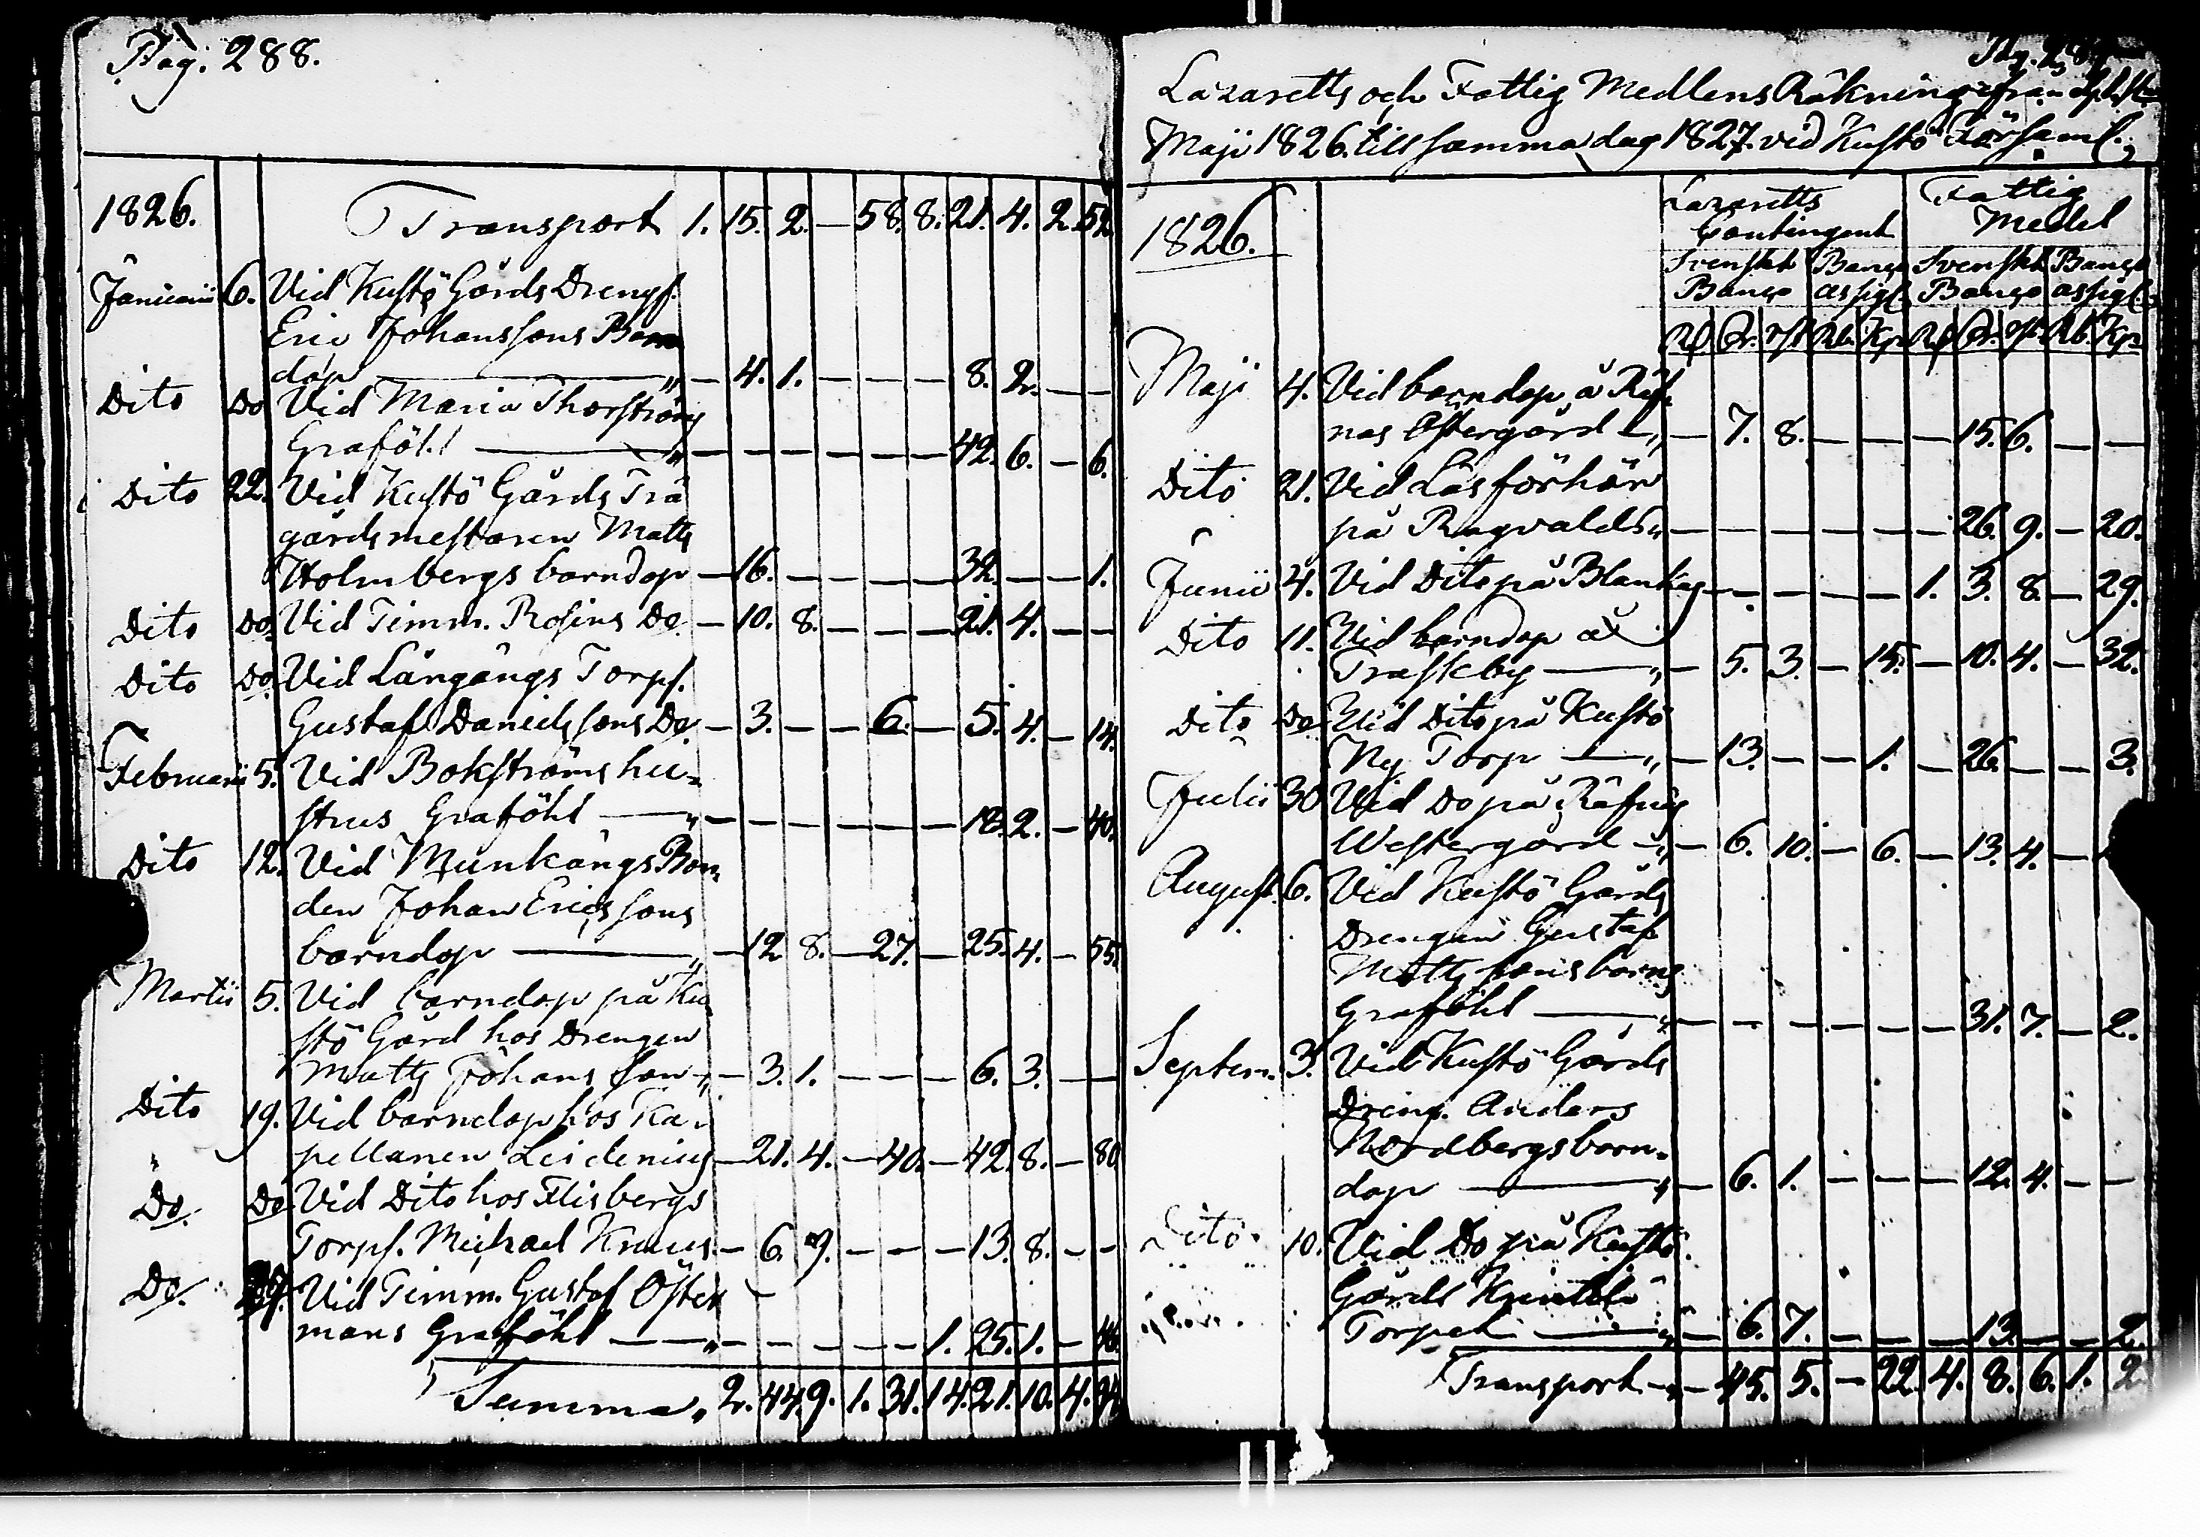 Pag. 288.
1826. Transport 1. 15. 2. — 58. 8. 21. 4. 2. 52.
Januarii 6. Vid Kustö Gårds Drengs.
Eric Johanssons Barn
dop — „ — 4. 1. — — — 8. 2. — —
Dito Do Vid Maria Thorströms
Graföhl — „ — — — — — — 42. 6. — 6.
Dito 22. Vid Kustö Gårds Trä
gårdsmestaren Matts
Holmbergs barndop — 16. — — — — 32. — — 1.
Dito Do. Vid Timm. Rosins Do. — 10. 8. — — — 21. 4. — —
Dito Do. Vid Långångs Torps.
Gustaf Danielssons Do. — 3. — — 6. — 5. 4. — 14.
Februarii 5. Vid Bokströms hu-
strus Graföhl — „ — — — — — — 18. 2. — 40.
Dito 12. Vid Munkängs Bon-
den Johan Ericssons
barndop — „ — 12 8. — 27. — 25. 4. — 55.
Martii 5. Vid barndop på Ku-
stö Gård hos Drengen
Matts Johansson — „ — 3. 1. — — — 6. 3. — —
Dito 19. Vid barndop hos Ka-
pellanen Leidenius — 21. 4. — 40. — 42. 8. — 80
Do. Do Vid Dito hos Flisbergs
Torps. Michael Knuus — 6. 9. — — — 13. 8. — —
Do. Vid Timm. Gustaf Öster
mans Graföhl — „ — — — — — 1. 25. 1. — 46
Summa, 2. 44. 9. 1. 31. 14. 21. 10. 4.
Lazaretts och Fattig Medlens Räkning från
Maji 1826. till samma dag 1827. vid Kustö Församl.
1826. Lazaretts Fattig
Contingent Medel
Svenskt Banco Svenskt Banco
Banco assign. Banco assign.
Rd. Gr. rst Rb. Kp. Rd Gr. rst. Rb. Kp.
Maji 4. Vid barndop å Räf-
nas Östergård — „ — 7. 8. — — — 15. 6. — —
Dito 21. Vid Läsförhör
på Ragvalds „ — — — — — — 26. 9. — 20.
Junii 4. Vid Dito på Blankas — — — — — 1. 3. 8. — 29.
Dito 11. Vid barndop å
Träskby — „ — 5. 3. — 15. — 10. 4. — 32.
Dito Do. Vid Dito på Kustö
Ny Torp — „ — 13. — — 1. — 26. — — 3.
Julii 30 Vid Do på Räfnäs
Westergård — „ — 6. 10. — 6. — 13. 4. —
August. 6. Vid Kustö Gårds
Drengen Gustaf
Mattssons barns
Graföhl — „ — — — — — — 31. 7. — 2.
Septem. 3. Vid Kustö Gårds
Dreng. Anders
Nordbergs barn-
dop — „ — 6. 1. — — — 12. 4. — —
Dito 10. Vid Do på Kustö
Gårds
Torpet — „ — 6. 7. — — — 13. — — 2.
Transport — „ — 45. 5. — 22. 4. 8. 6. 1. 2